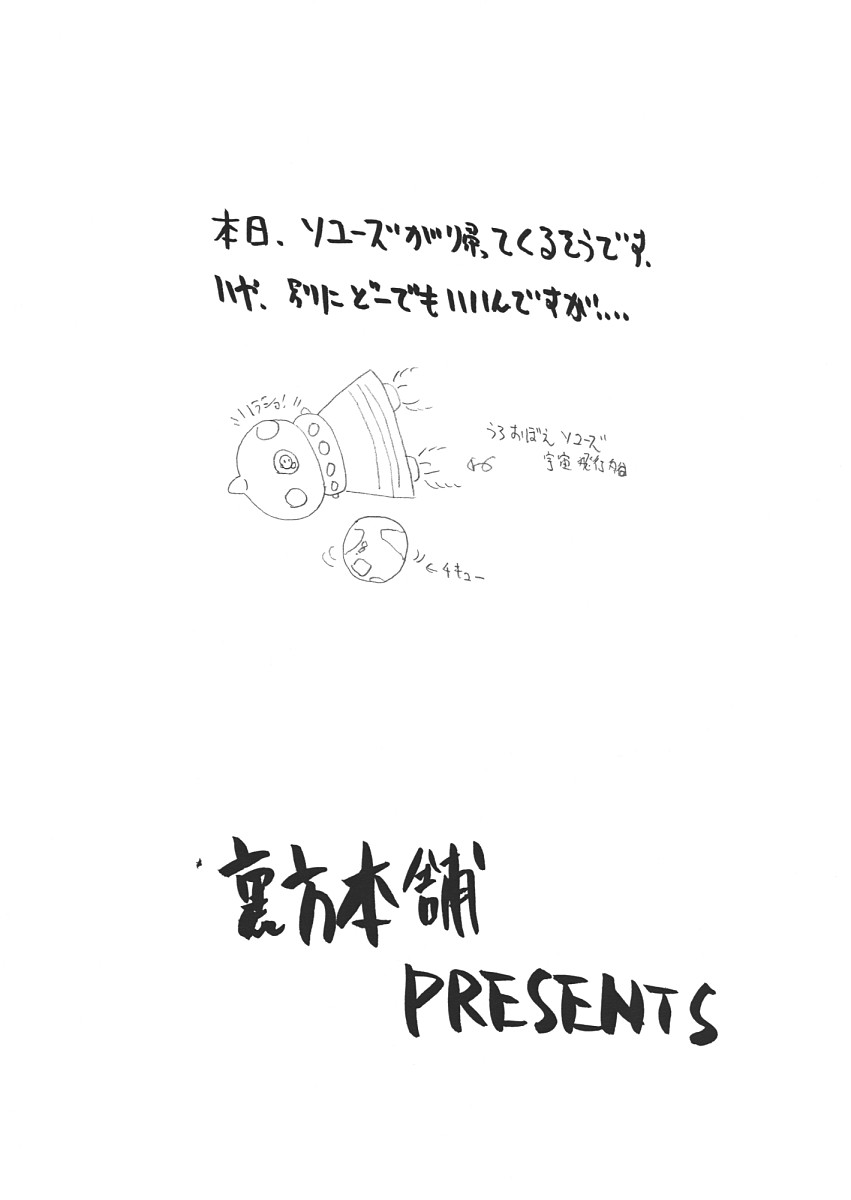 本日、ソユーズが帰ってくるそうです、
いや、別にどーでもいいんですが....
ハラショ!!
うろおぼえソユーズ
宇宙飛行船
←チキュー
裏方本舗
PRESENTS